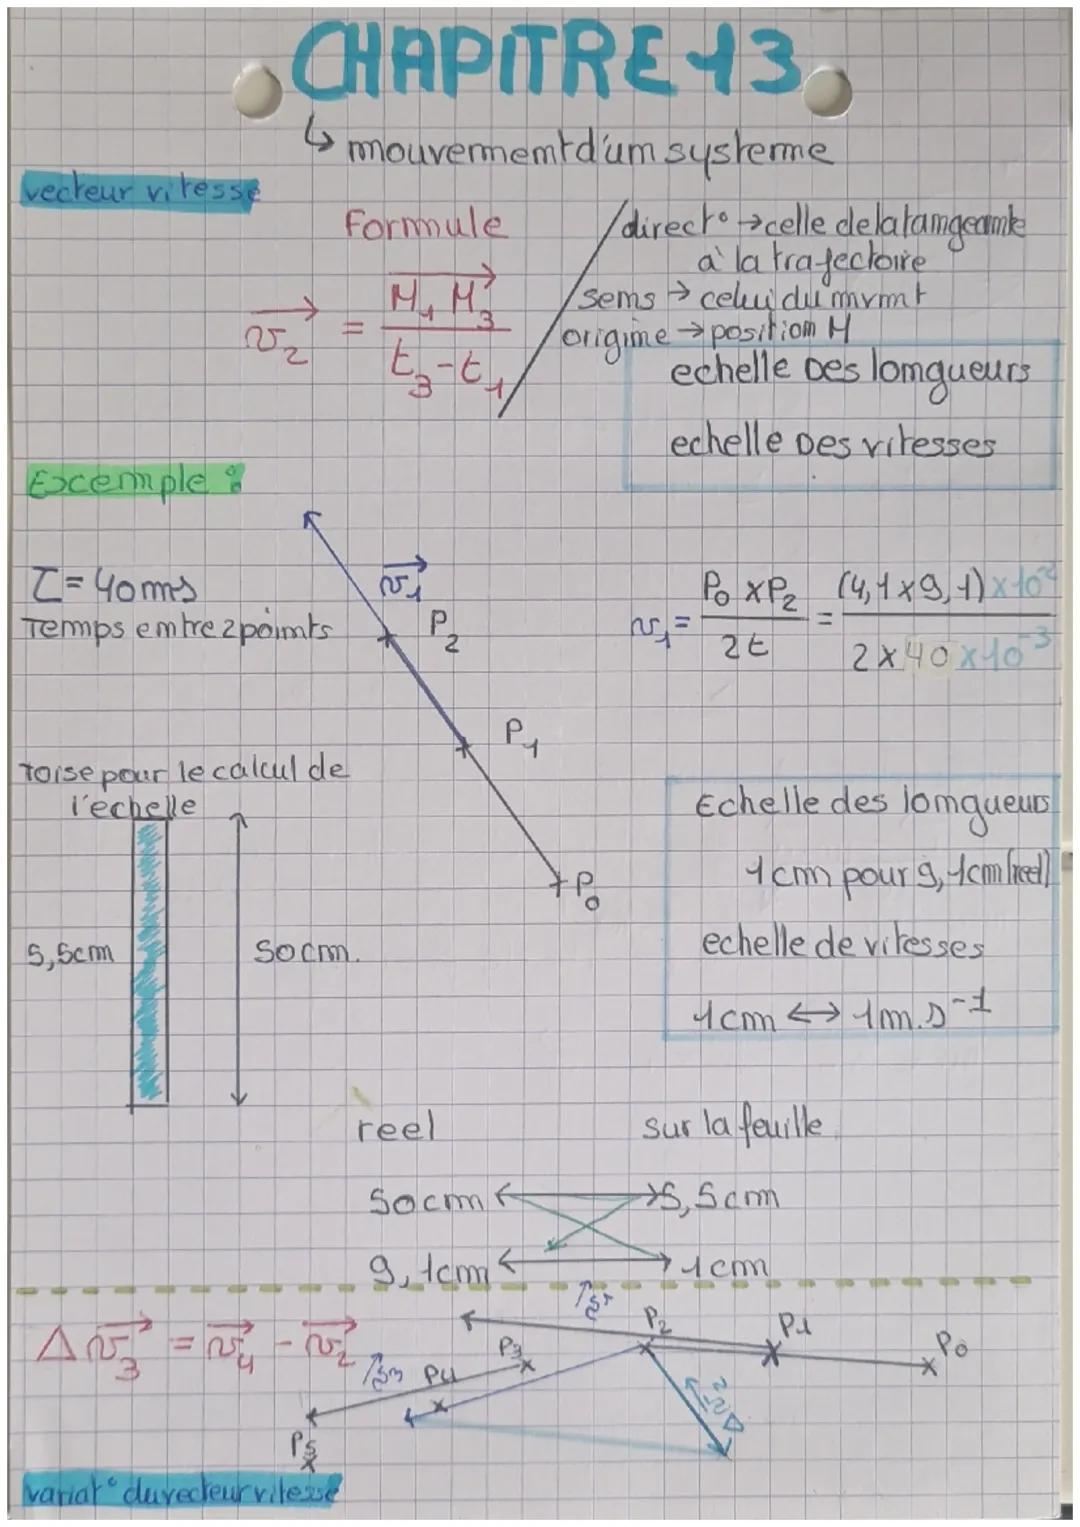 CHAPITRE 13
↳ mouvement d'un systeme
vecteur vitesse
Formule
v₂ = M₁M₃ / t₃-t₁
direct° → celle de la tangeante
à la trajectoire
sens → celui du mvmt
origine → position M
echelle Des longueurs
echelle Des vitesses
Excemple :
τ = 40ms
Temps entre 2 points
v₁
P₂
P₁
P₀
v₁ = P₀ × P₂ / 2t = (4,1 x 9,1) x 10⁻² / 2 x 40 x 10⁻³
Toise pour le calcul de
l'echelle
5,5cm
50cm.
Echelle des longueurs
1cm pour 9,1cm (reel)
echelle de vitesses
1cm ↔ 1m.s⁻¹
reel
sur la feuille
50cm 5,5cm
9,1cm 1cm
Δv₃ = v₄ - v₂
P₀
P1
P₂
P₃
P4
P5
variat° du vecteur vitesse